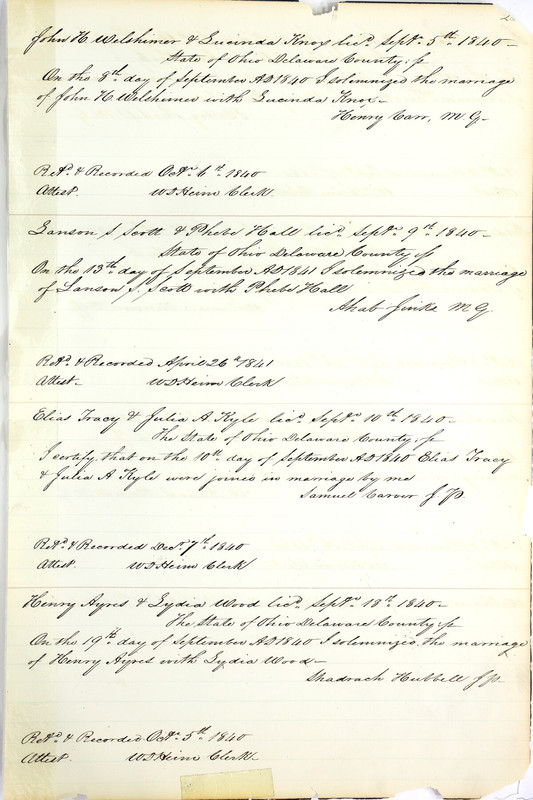 John H. Welshimer & Lucinda Knox licd. Septr. 5th. 1840-
State of Ohio Delaware County, ss
On the 8th. day of September AD 1840 I solemnized the marriage
of John H. Welshimer with Lucinda Knox-
Henry Carr, M.G-
Retd. & Recorded Octr. 6th. 1840
Attest. W D Heim Clerk.
Lanson S Scott & Phebe Hall licd. Septr. 9th. 1840-
State of Ohio Delaware County ss
On the 13th. day of September AD 1841 I solemnized the marriage
of Lanson S. Scott with Phebe Hall
Ahab Jinks M.G.
Retd. & Recorded April 26th 1841
Attest- W D Heim Clerk
Elias Tracy & Julia A Kyle licd. Septr. 10th. 1840-
The State of Ohio Delaware County, ss
I certify, that on the 10th. day of September AD 1840 Elias Tracy
& Julia A Kyle were joined in marriage by me
Samuel Carver J. P.
Retd. & Recorded Decr. 7th. 1840
Attest. W D Heim Clerk
Henry Ayres & Lydia Wood licd. Septr. 18th. 1840-
The State of Ohio Delaware County, ss
On the 19th. day of September AD 1840 I solemnized the marriage
of Henry Ayres with Lydia Wood-
Shadrach Hubbell J P.
Retd. & Recorded Octr. 5th. 1840
Attest. W D Heim Clerk-